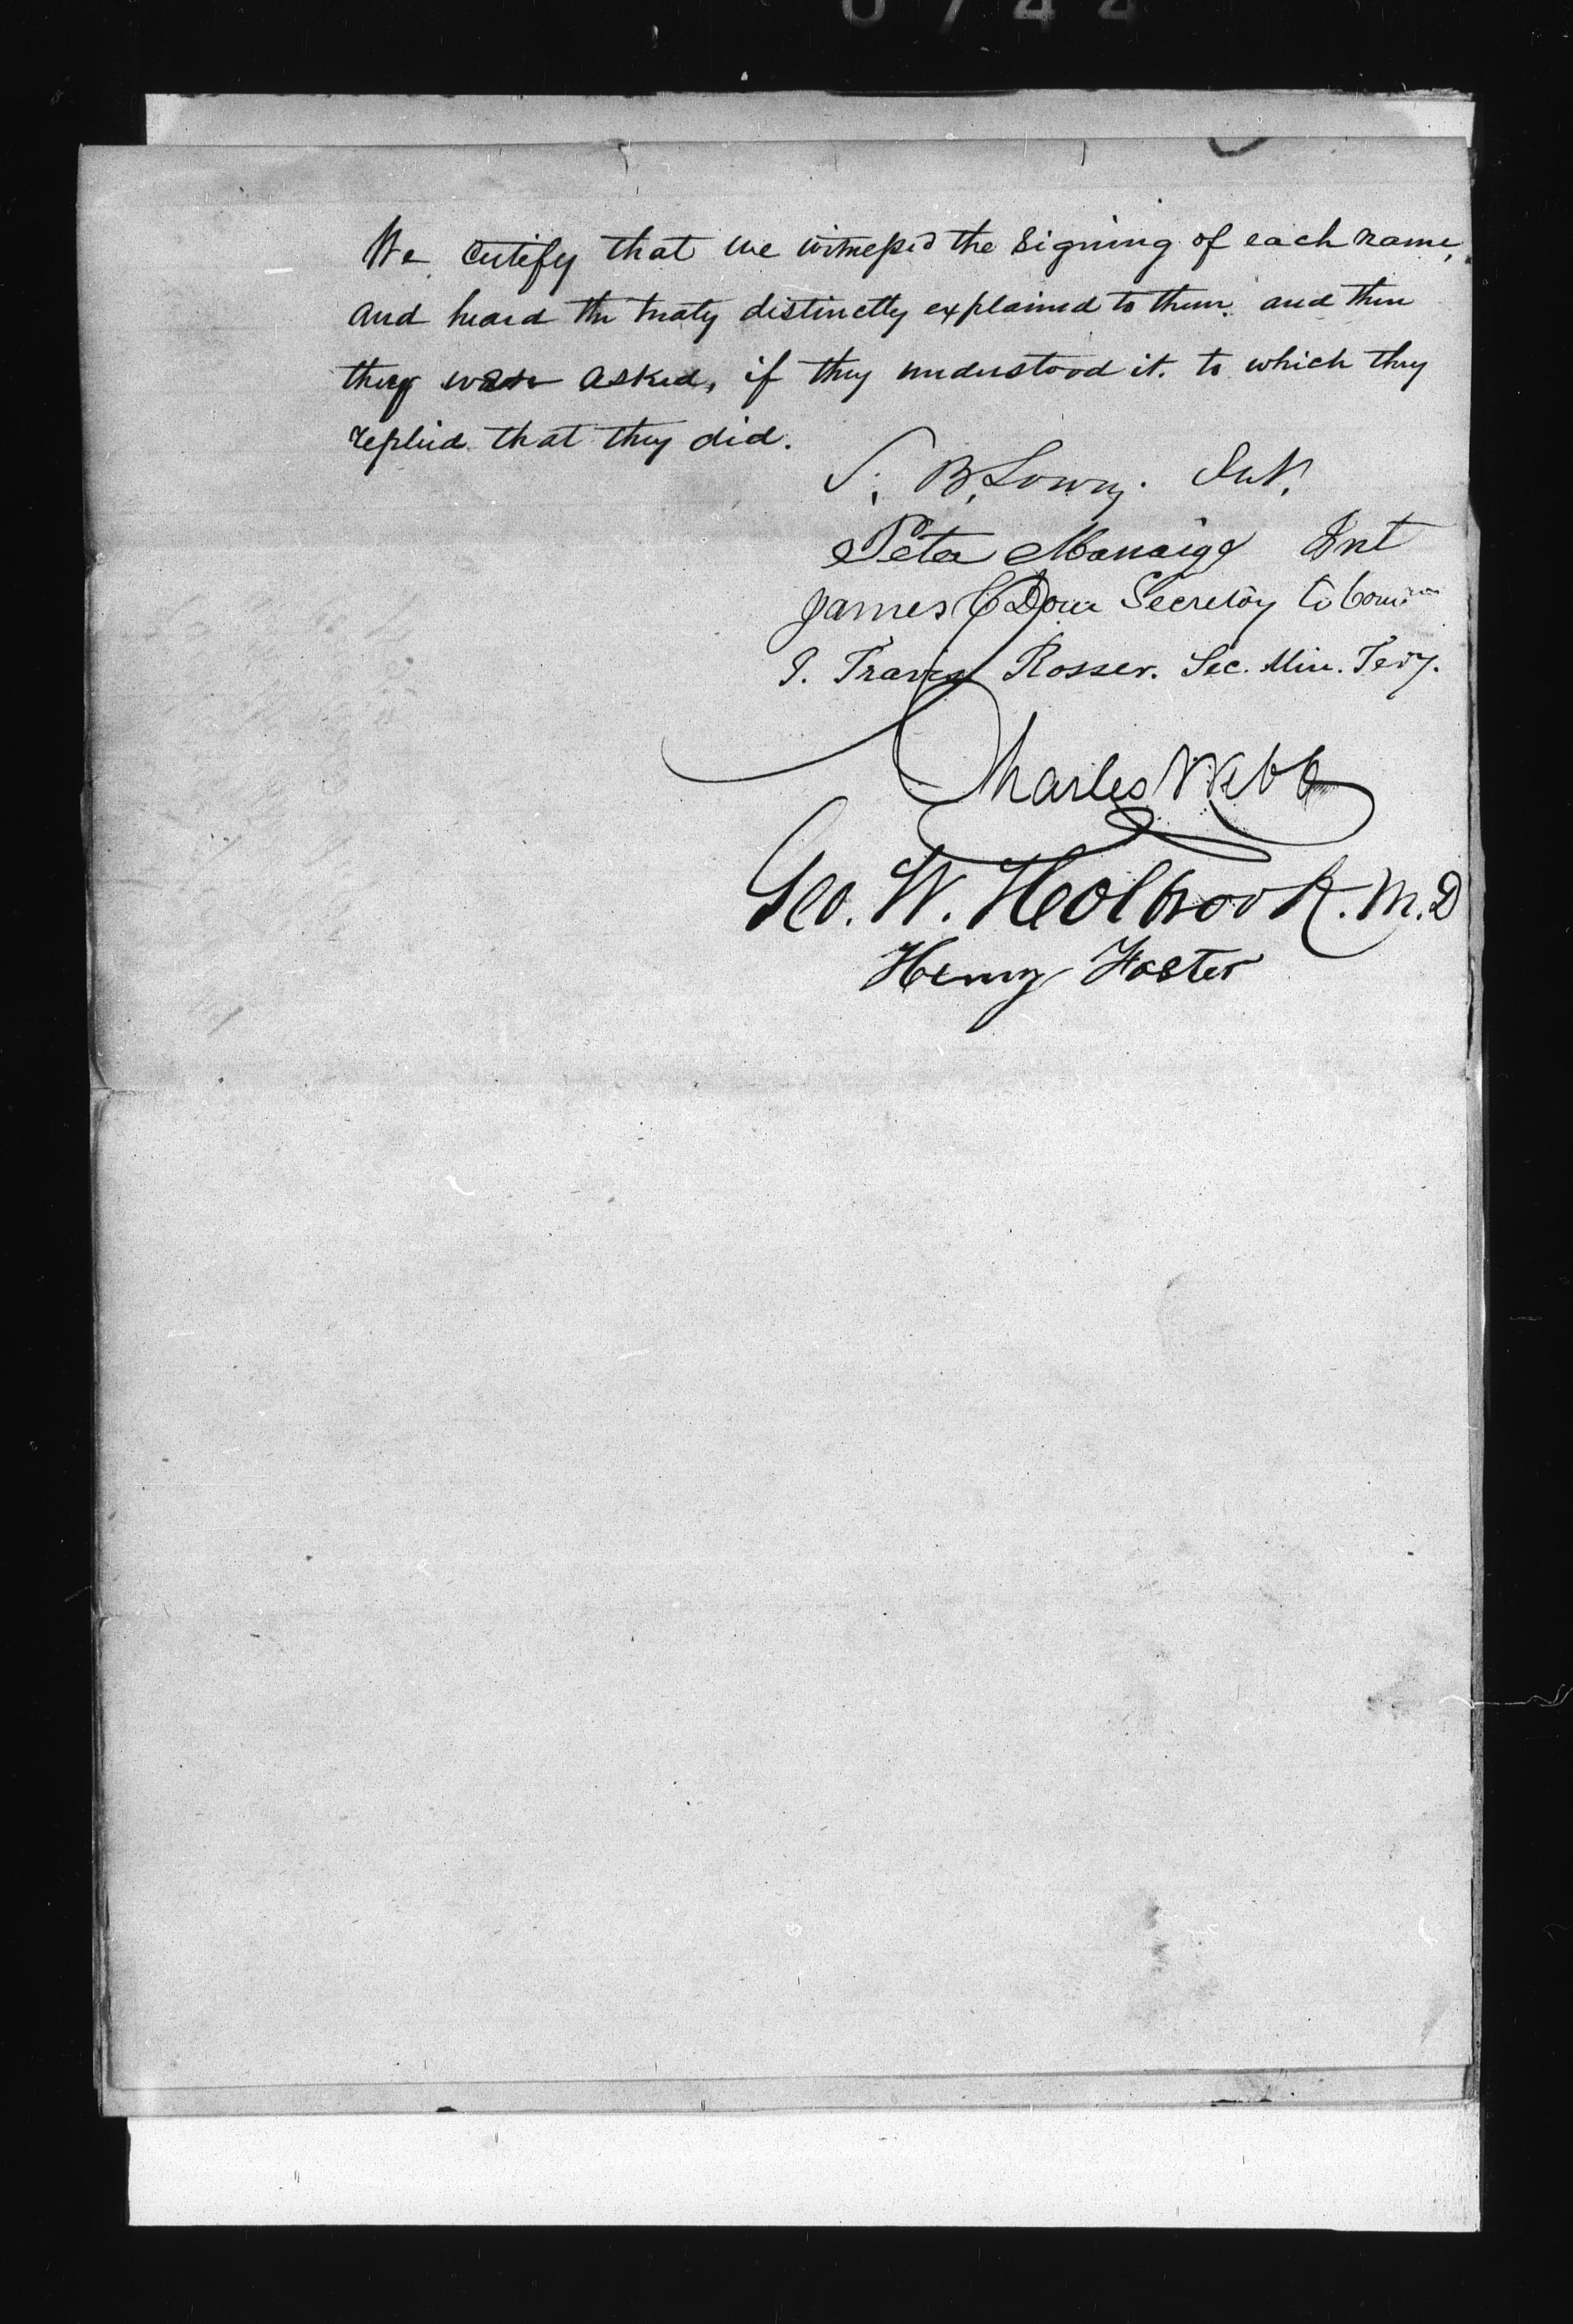 0744
We certify that we witnessed the signing of each name,
and heard the treaty distinctly explained to them. and then
they were asked, if they understood it. to which they
replied that they did.
S. B. Lowry. Int.
Peter Manaige Int
James C Dow Secretary to Com.
J. Travis Rosser. Sec. Min. Tery.
Charles Webb
Geo. W. Holbrook. M.D
Henry Foster